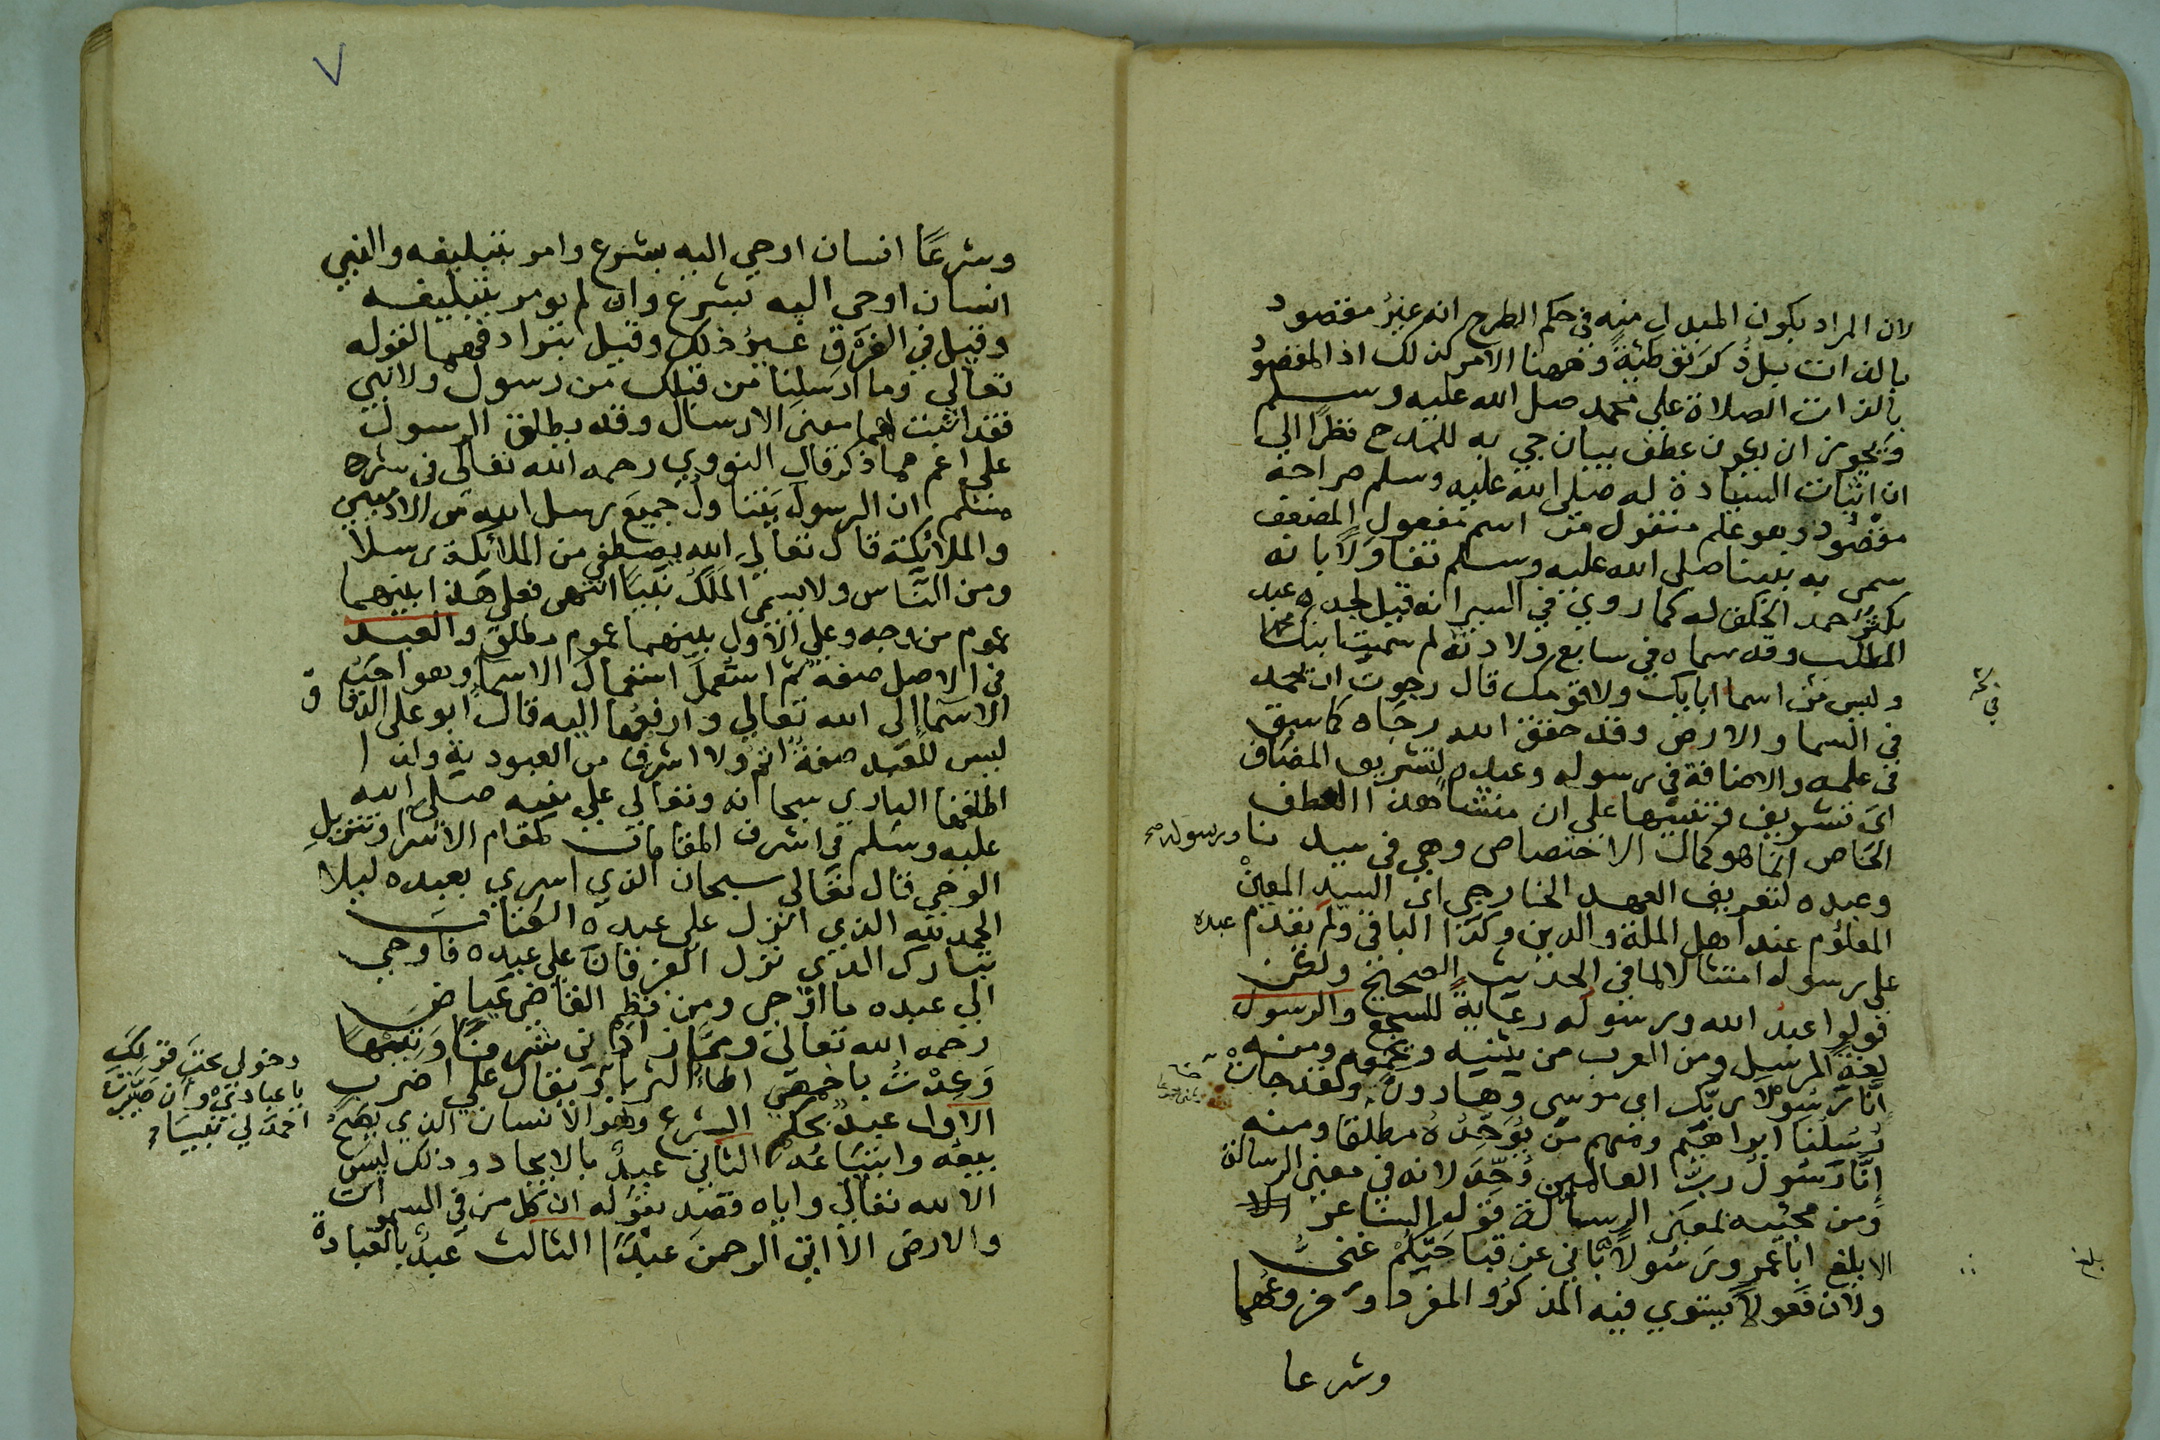 لان المراد بكون المبدل منه في حكم الطرح انه غير مقصود
بالذات بل ذكر توطئة وههنا الامر كذلك اذ المقصود
بالذات الصلاة على محمد صلى الله عليه وسلم
ويجوز ان يكون عطف بيان جي به للمدح نظرا الى
ان اثبات السيادة له صلى الله عليه وسلم صراحة
مقصود وهو علم منقول من اسم مفعول المضعف
سمى به نبينا صلى الله عليه وسلم تفاولا بانه
يكثر حمد الخلق له كما روي في السير انه قيل لجده عبد
المطلب وقد سماه في سابع ولادته لم سميت ابنك محمدا
وليس من اسما ابايك ولا قومك قال رجوت ان يحمد
في السما والارض وقد حقق الله رجاه كما سبق
في علمه والاضافة في رسوله وعبده لتشريف المضاف
اي تشريف وتنبيها على ان منشا هذا العطف
الخاص انما هو كمال الاختصاص وهي في سيدنا ورسوله صح
وعبده لتعريف العهد الخارجي اي السيد المعين
المعلوم عند اهل الملة والدين وكذا الباقي ولم يقدم عبده
على رسوله امتثالا لما في الحديث الصحيح ولكن
قولوا عبد الله ورسوله رعاية للسجع والرسول
لغة المرسل ومن العرب من يثنيه ويجمعه ومنه
انا رسولا ربك اي موسى وهارون ولقد جات
رسلنا ابراهيم ومنهم من يوحده مطلقا ومنه
إنا رسول رب العالمين وحد لانه في معنى الرسالة
ومن مجيئه بمعنى الرسالة قوله الشاعر
الا بلغ ابا عمرو رسولا باني عن قباحتكم غني
ولان فعولا يستوي فيه المذكر والمفرد وفروعهما
وشرعا
وشرعا انسان اوحي اليه بشرع وامر بتبليغه والنبي
انسان اوحي اليه بشرع وان لم يومر بتبليغه
وقيل في الفرق غير ذلك وقيل بترادفهما لقوله
تعالى وما ارسلنا من قبلك من رسول ولا نبي
فقد اثبت لهما معنى الارسال وقد يطلق الرسول
على اعم مما ذكر قال النووي رحمه الله تعالى في شرح
مسلم ان الرسول يتناول جميع رسل الله من الادميين
والملائكة قال تعالى الله يصطفي من الملائكة رسلا
ومن الناس ولا يسمى الملك نبيا انتهى فعلى هذا بينهما
عموم من وجه وعلى الاول بينهما عموم مطلق والعبد
في الاصل صفة ثم استعمل استعمال الاسما وهو احب
الاسما الى الله تعالى وارفعها اليه قال ابو علي الدقاق
ليس للعبد صفة اتم ولا اشرف من العبودية ولذا
اطلقها الباري سبحانه وتعالى على نبيه صلى الله
عليه وسلم في اشرف المقامات كمقام الاسرا وتنزيل
الوحي قال تعالى سبحان الذي اسري بعبده ليلا
الحمد لله الذي انزل على عبده الكتاب
تبارك الذي نزل الفرقان على عبده فاوحى
الى عبده ما اوحى ومن نظم القاضي عياض
رحمه الله تعالى ومما زادني شرفا وتيها
وكدت باخمصي اطا الثريا ويقال على اضرب
الاول عبد بحكم الشرع وهو الانسان الذي يصح
بيعه وابتياعه الثاني عبد بالايجاد وذلك ليس
الا لله تعالى واياه قصد بقوله ان كل من في السموات
والارض الا اتي الرحمن عبدا الثالث عبد بالعبادة
دخولي تحت قولك
يا عبادي وان صيرت
احمد لي نبيا